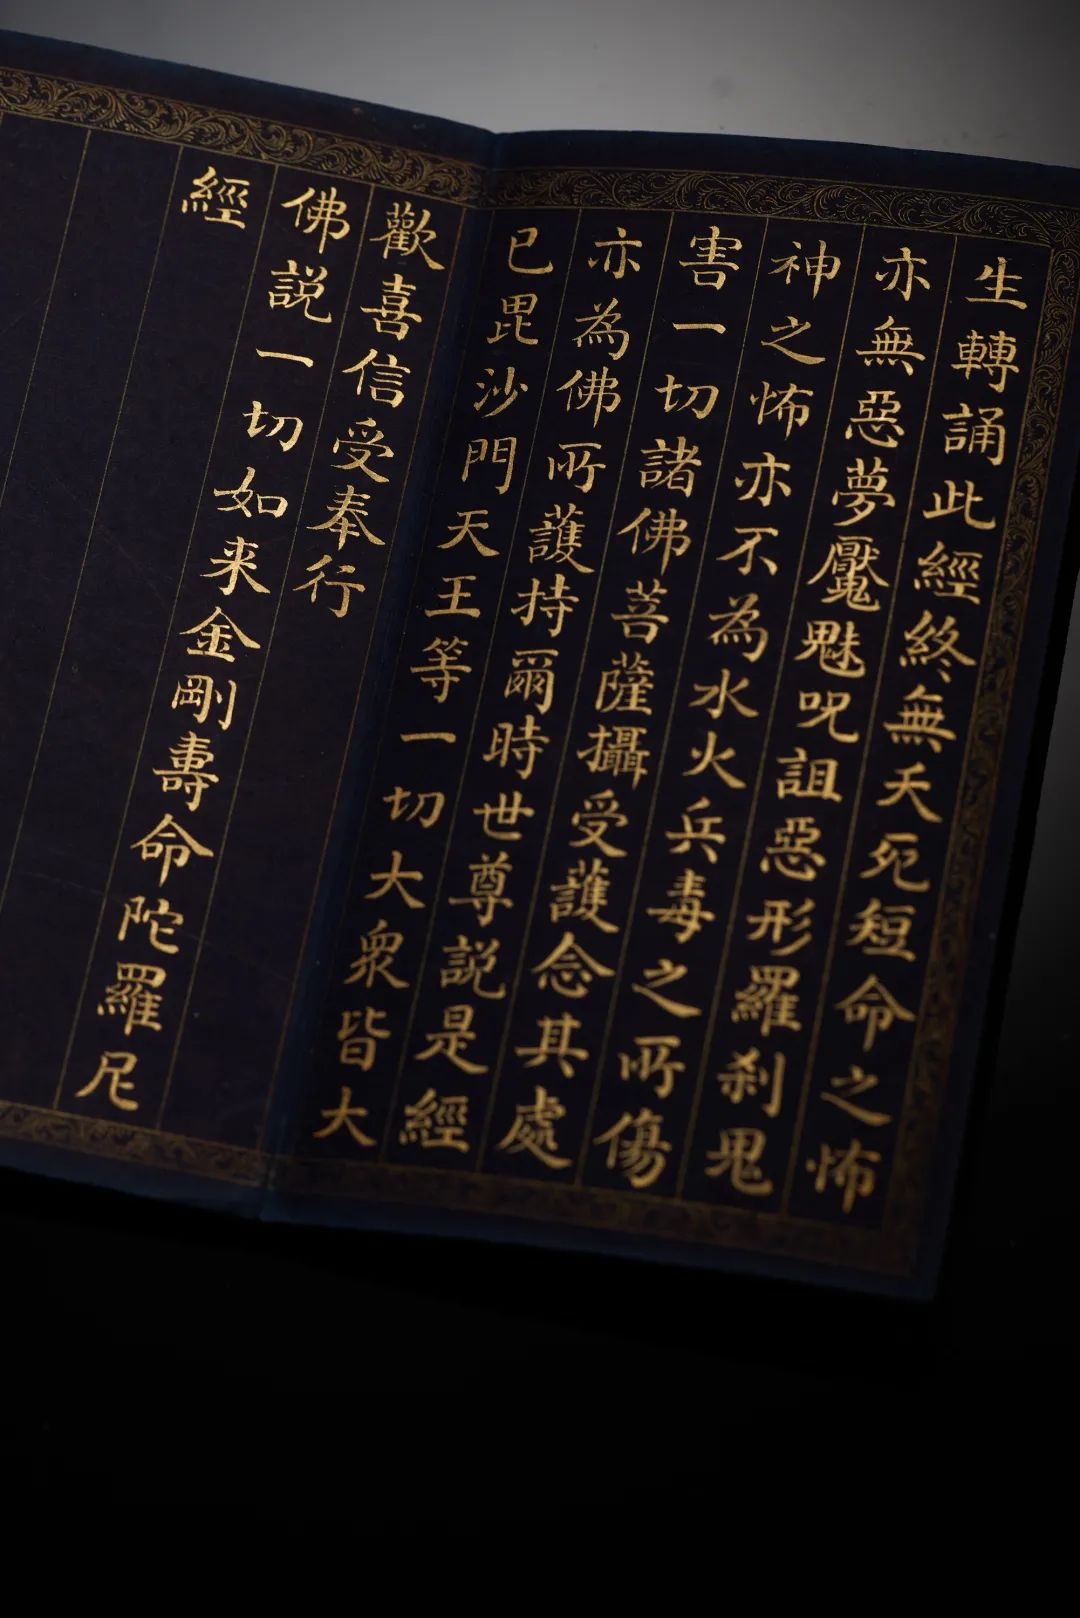 生轉誦此經終無夭死短命之怖
亦無惡夢魘魅呪詛惡形羅刹鬼
神之怖亦不為水火兵毒之所傷
害一切諸佛菩薩攝受護念其處
亦為佛所護持爾時世尊說是經
已毘沙門天王等一切大衆皆大
歡喜信受奉行
佛說一切如来金剛壽命陀羅尼
經